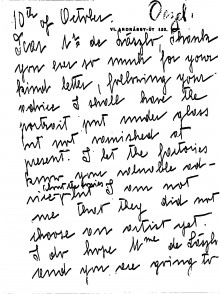 10th of October.
VI. ANDRÁSSY-ÚT 122.
Dear Mr de László, Thank
you ever so much for your
kind letter, following your
advice I shall have the
portrait put under glass
but not varnished at
present. I let the factories
know your valuable ad-
vice but I am not
me that they did not
choose an artist yet.
I do hope Mme de László
and you are going to